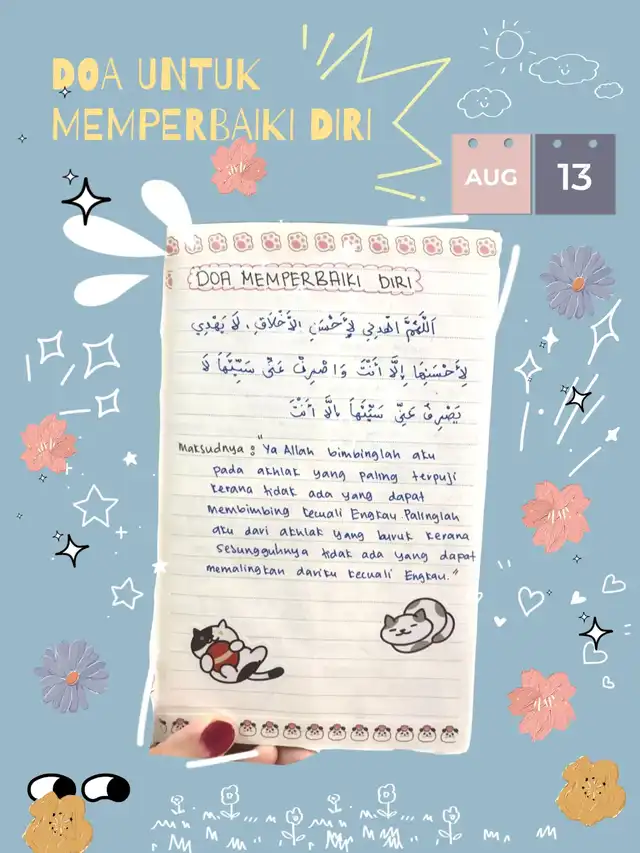 DOA UNTUK
MEMPERBAIKI DIRI
AUG 13
DOA MEMPERBAIKI DIRI
اَللّٰهُمَّ اهْدِنِي لِأَحْسَنِ الأَخْلَاقِ، لَا يَهْدِي
لِأَحْسَنِهَا إِلَّا أَنْتَ وَاصْرِفْ عَنِّي سَيِّئَهَا لَا
يَصْرِفُ عَنِّي سَيِّئَهَا إِلَّا أَنْتَ
Maksudnya : "Ya Allah bimbinglah aku
pada akhlak yang paling terpuji
kerana tidak ada yang dapat
membimbing kecuali Engkau. Palinglah
aku dari akhlak yang buruk kerana
sesungguhnya tidak ada yang dapat
memalingkan dariku kecuali Engkau."